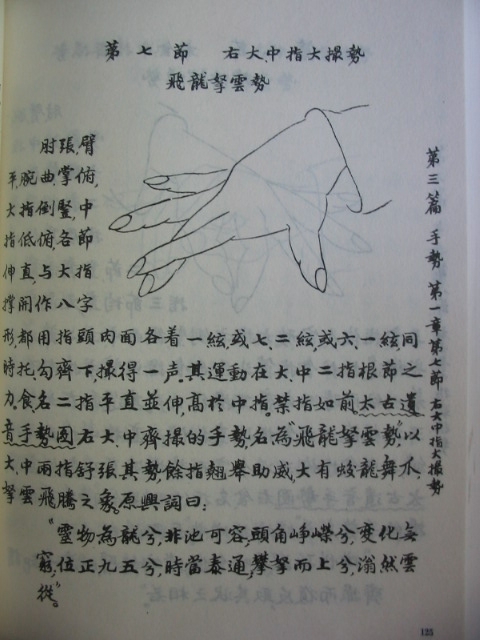 第七節　右大、中指大撮勢
飛龍拏雲勢
肘張、臂
平、腕曲、掌俯,
大指倒豎,中
指低俯,各節
伸直,与大指
撑開作八字
形都用指頭肉面各着一絃或七二絃,或六、一絃间
時托、勾齊下,撮得一声。其運動在大、中二指根節之
力。食名二指平直並伸,髙於中指。禁指如前。太古遺
音手勢图右大、中齊撮的手勢名為“飛龍拏雲勢”。以
大、中两指舒張其勢,餘指翹舉助威,大有蛟龍舞爪,
拏雲飛騰之象。原興詞曰:
“靈物為龍兮,非池可容,頭角峥嶸兮,变化無
窮,位正九五兮,時當泰通,攀拏而上兮,滃然雲
從。”
第三篇　手勢　第一章第七節　右大中指大撮勢
125